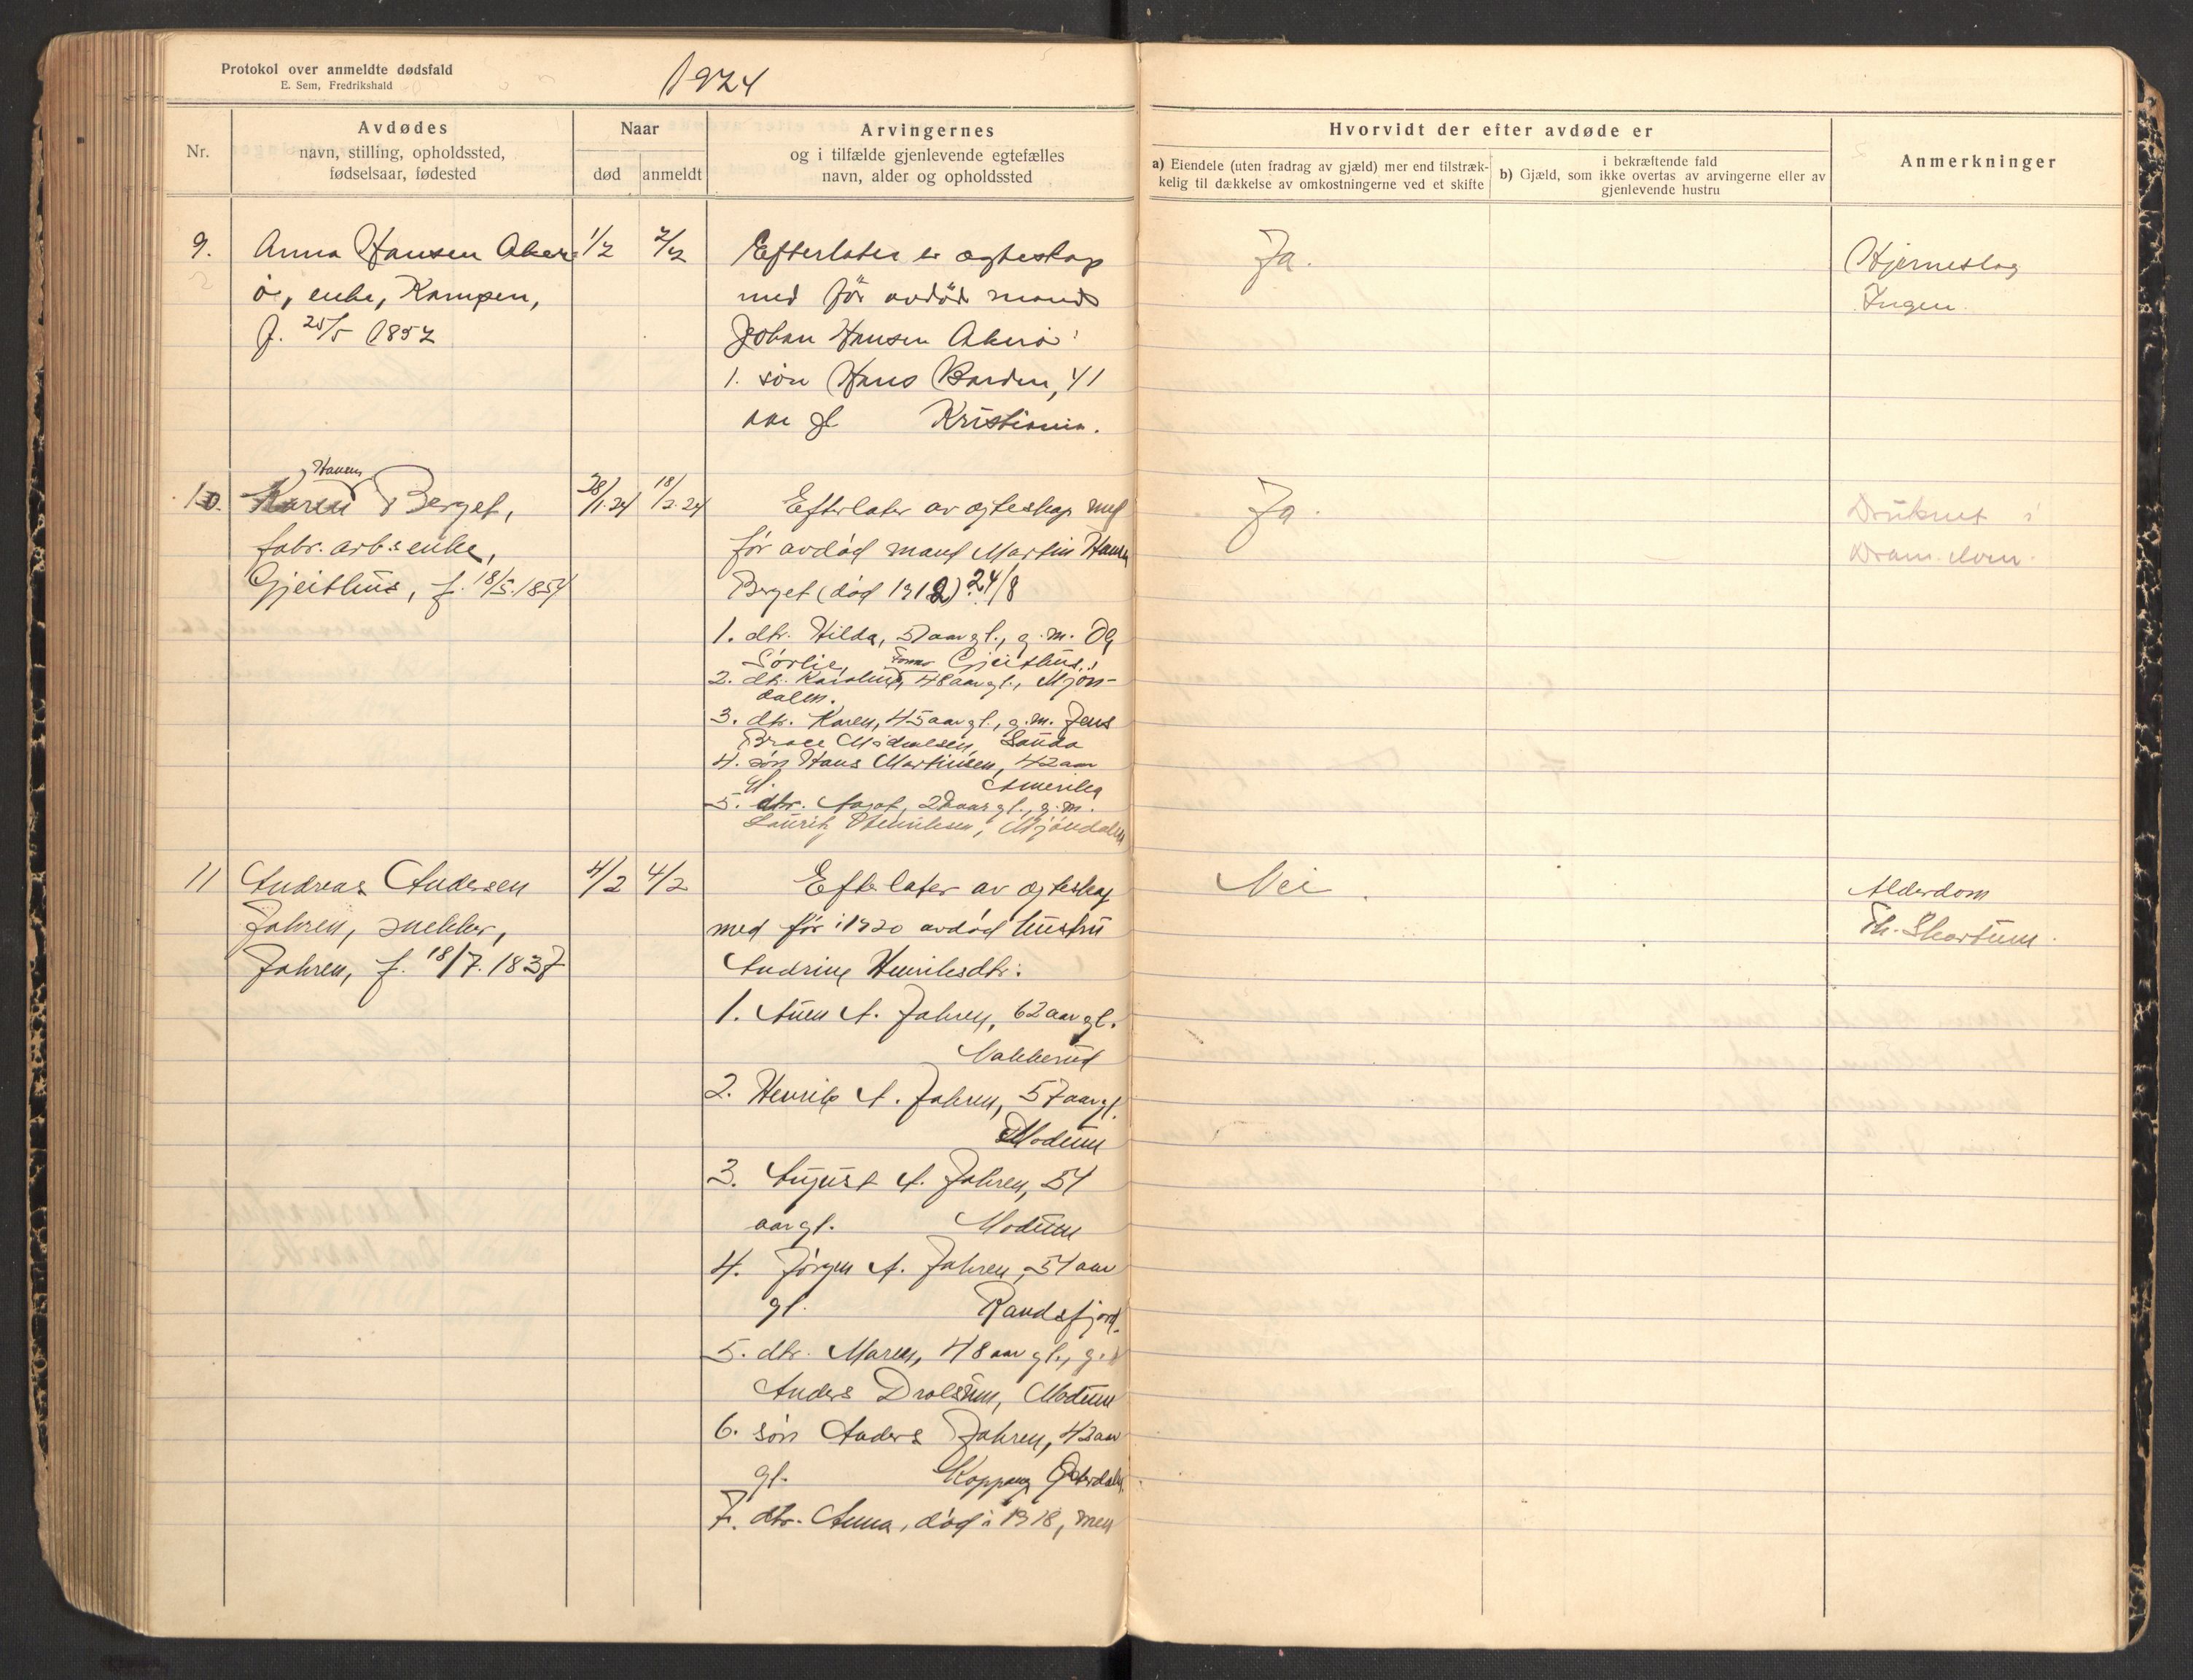 Protokol over anmeldte dødsfald
E. Sem, Fredrikshald
1924
Nr.
Avdødes
navn, stilling, opholdssted,
fødselsaar, fødested
Naar
død
anmeldt
Arvingernes
og i tilfælde gjenlevende egtefælles
navn, alder og opholdssted
Hvorvidt der efter avdøde er
a) Eiendele (uten fradrag av gjæld) mer end tilstræk-
kelig til dækkelse av omkostningerne ved et skifte
i bekræftende fald
b) Gjæld, som ikke overtas av arvingerne eller av
gjenlevende hustru
Anmerkninger
9.
Anna Hansen Aker
ø, enke, Kampen,
f. 25/5 1857
1/2
Efterlater er ægteskap
med før avdød mand
Johan Hansen Akerø:
1. søn Hans Barden, 41
aar gl Kristiania.
Ja.
Hjerneslag
Ingen.
10.
Hansen
Karen Berget,
fabr. arb.s enke,
Gjeithus, f. 18/5.1854
28/1.24
18/2.24
Efterlater av egteskap med
før avdød mand Martin Hansen
Berget (død 1912) 24/8
1. dtr. Hilda, 51 aar gl., g.m. Og
Sørlie, Gjeithus,
2. dtr. Karoline, 48 aar gl., Mjøn-
dalen.
3. dtr. Karen, 45 aar gl., g.m. Jens
4. søn Hans Martinsen, 42 aar
gl. Amerika
5. dtr. Aagot, aar gl., g.m.
Lauritz Henriksen, Mjøndalen
Ja.
Druknet i
Dram.elven.
11
Andreas Andersen
Jahren, snekker,
Jahren, f. 18/7. 1837
4/2
4/2
Efterlater av egteskap
med før i 1920 avdød hustru
Andrine Henriksdtr:
1. A. Jahren, 62 aar gl.
Nakkerud
2. Henrik A. Jahren, 57 aar gl.
Modum
3. August A. Jahren, 54
aar gl. Modum
4. Jørgen A. Jahren, 51 aar
gl. Randsfjord.
5. dtr. Maren, 48 aar gl., g.
Anders Drolsum, Modum
6. søn Anders Jahren, 42 aar
gl. Koppang Østerdalen
7. dtr. Anna, død i 1918, men
Nei.
Alderdom
Th. Skartum.